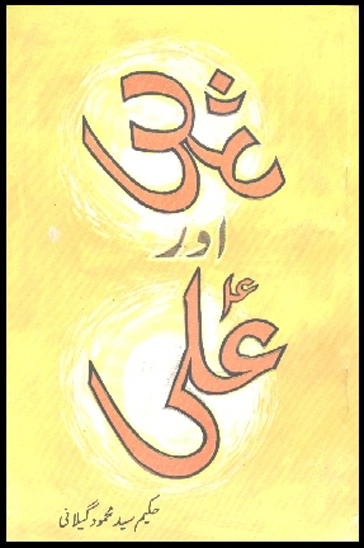 ॐ
اور
علیؑ
حکیم سید محمود گیلانی